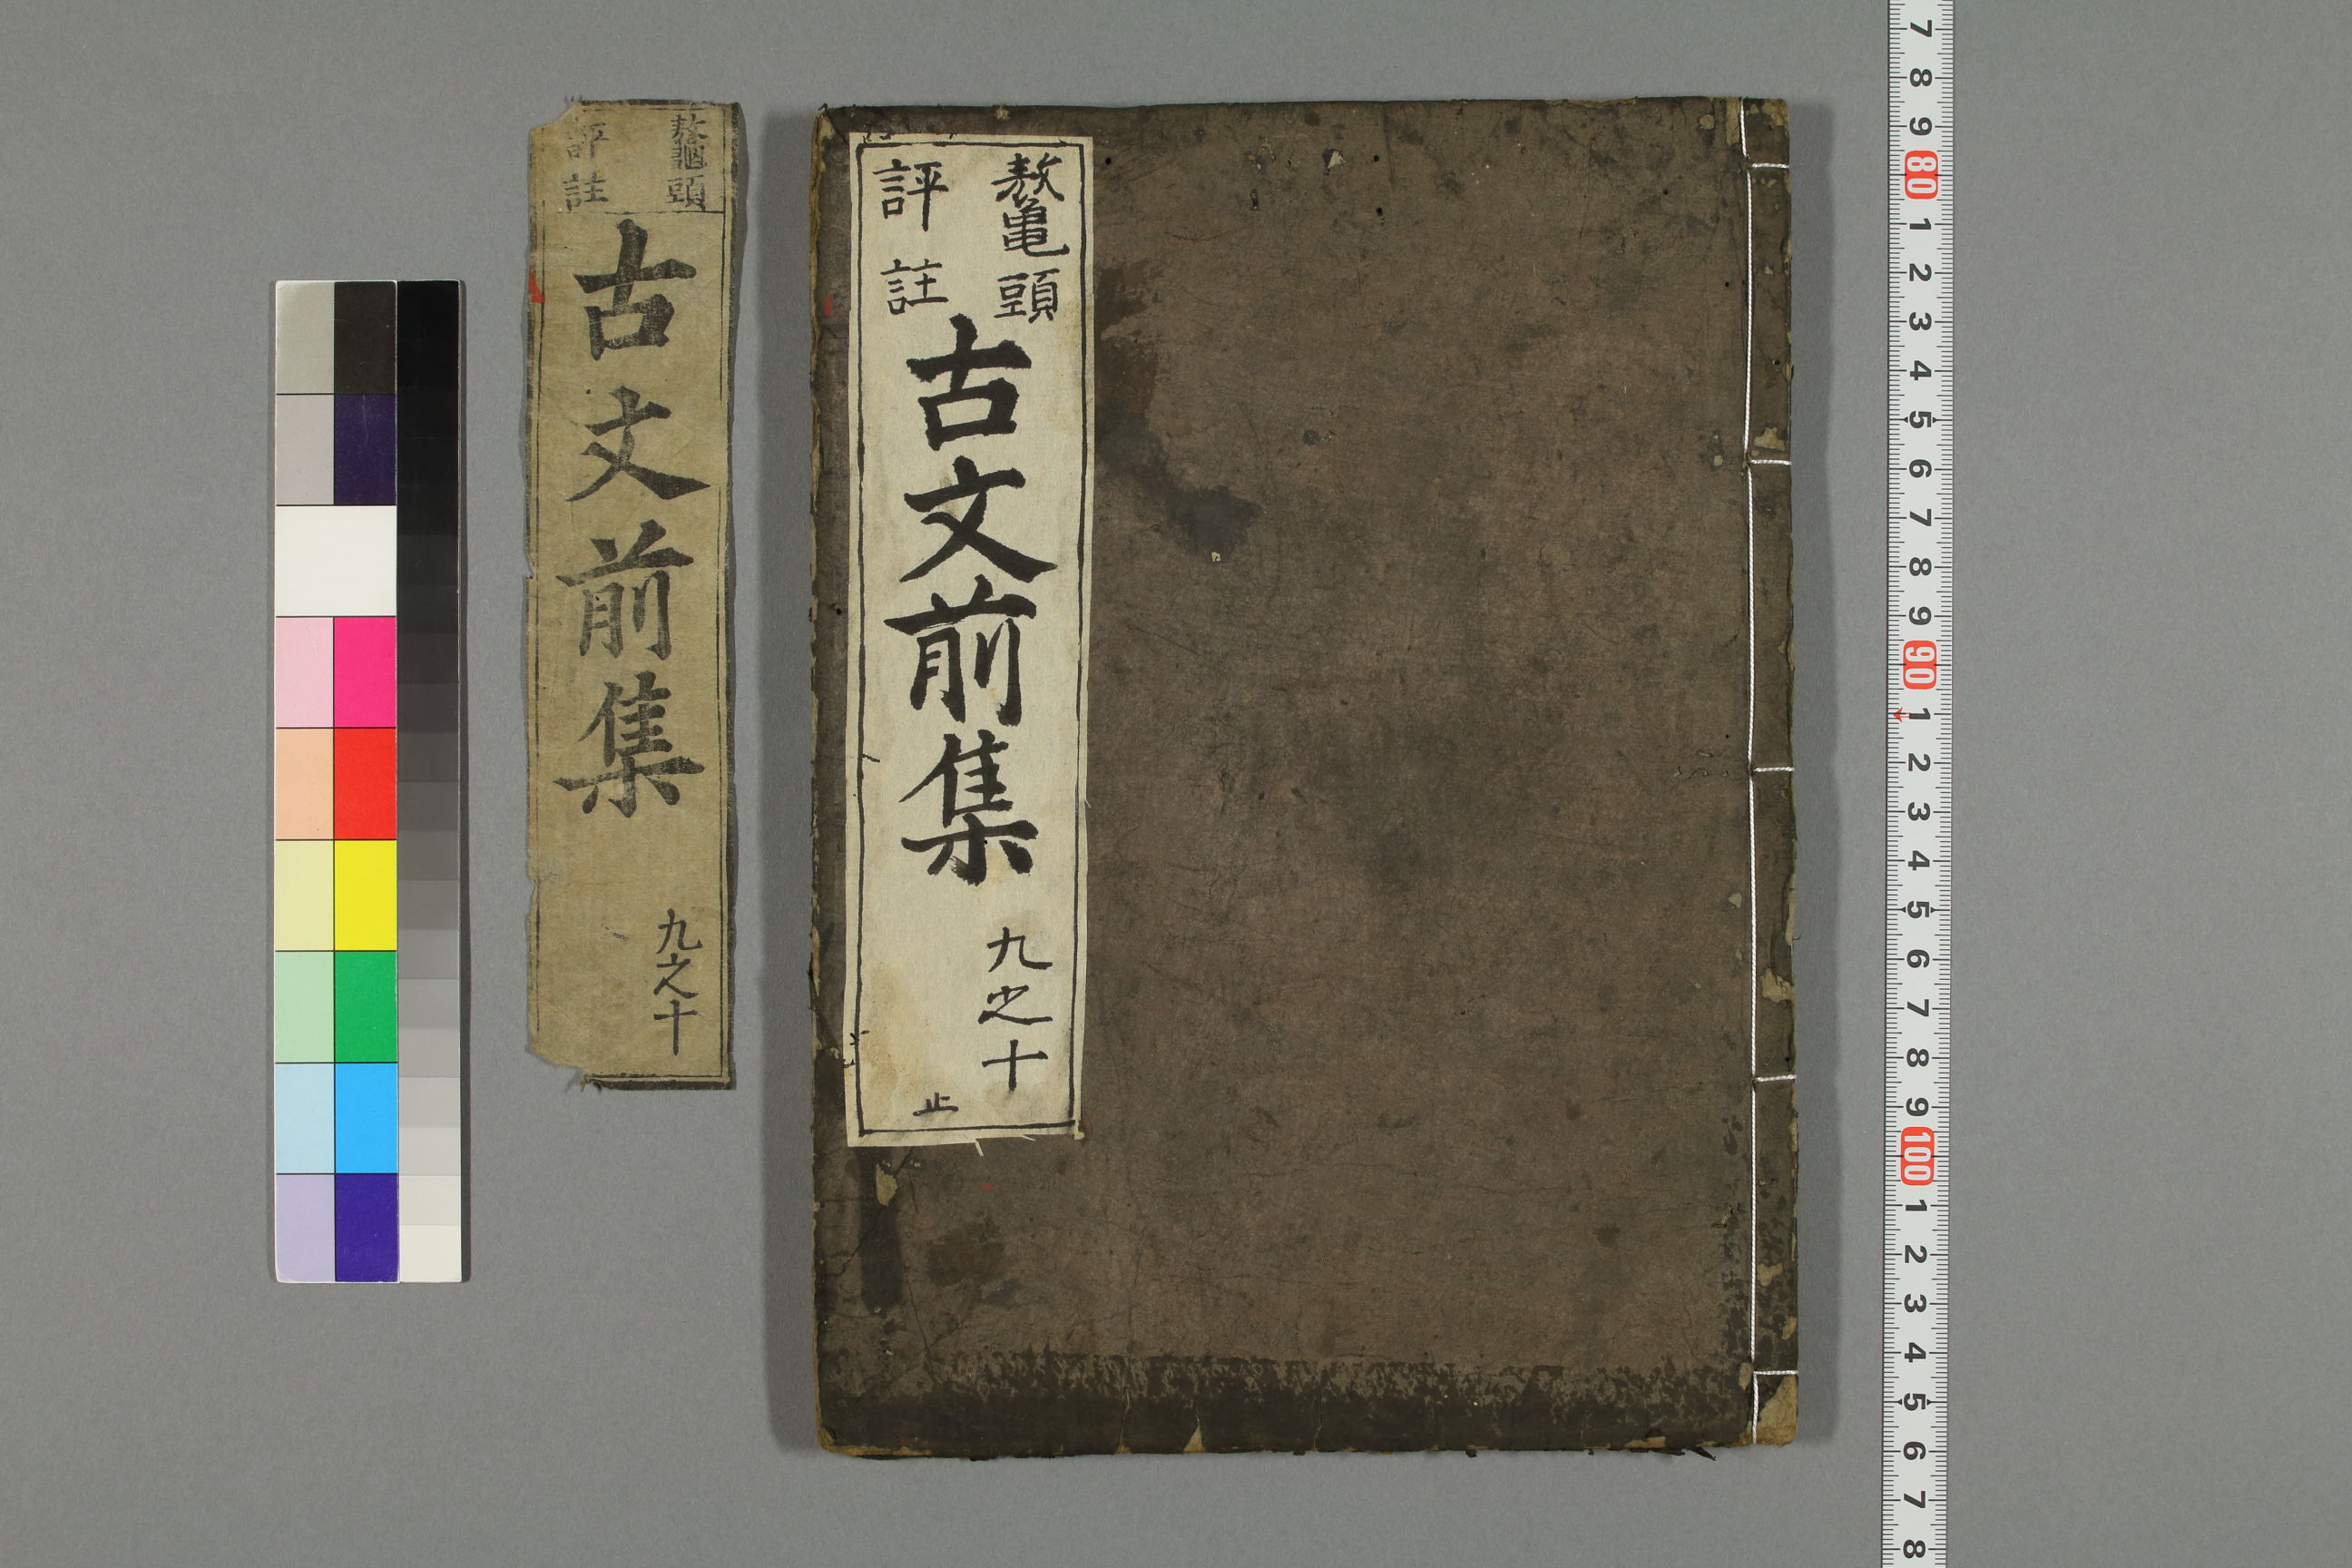 鼇頭
評註
古文前集
九之十
鼇頭
評註
古文前集
九之十
止
7
8
9
80
1
2
3
4
5
6
7
8
9
90
1
2
3
4
5
6
7
8
9
100
1
2
3
4
5
6
7
8